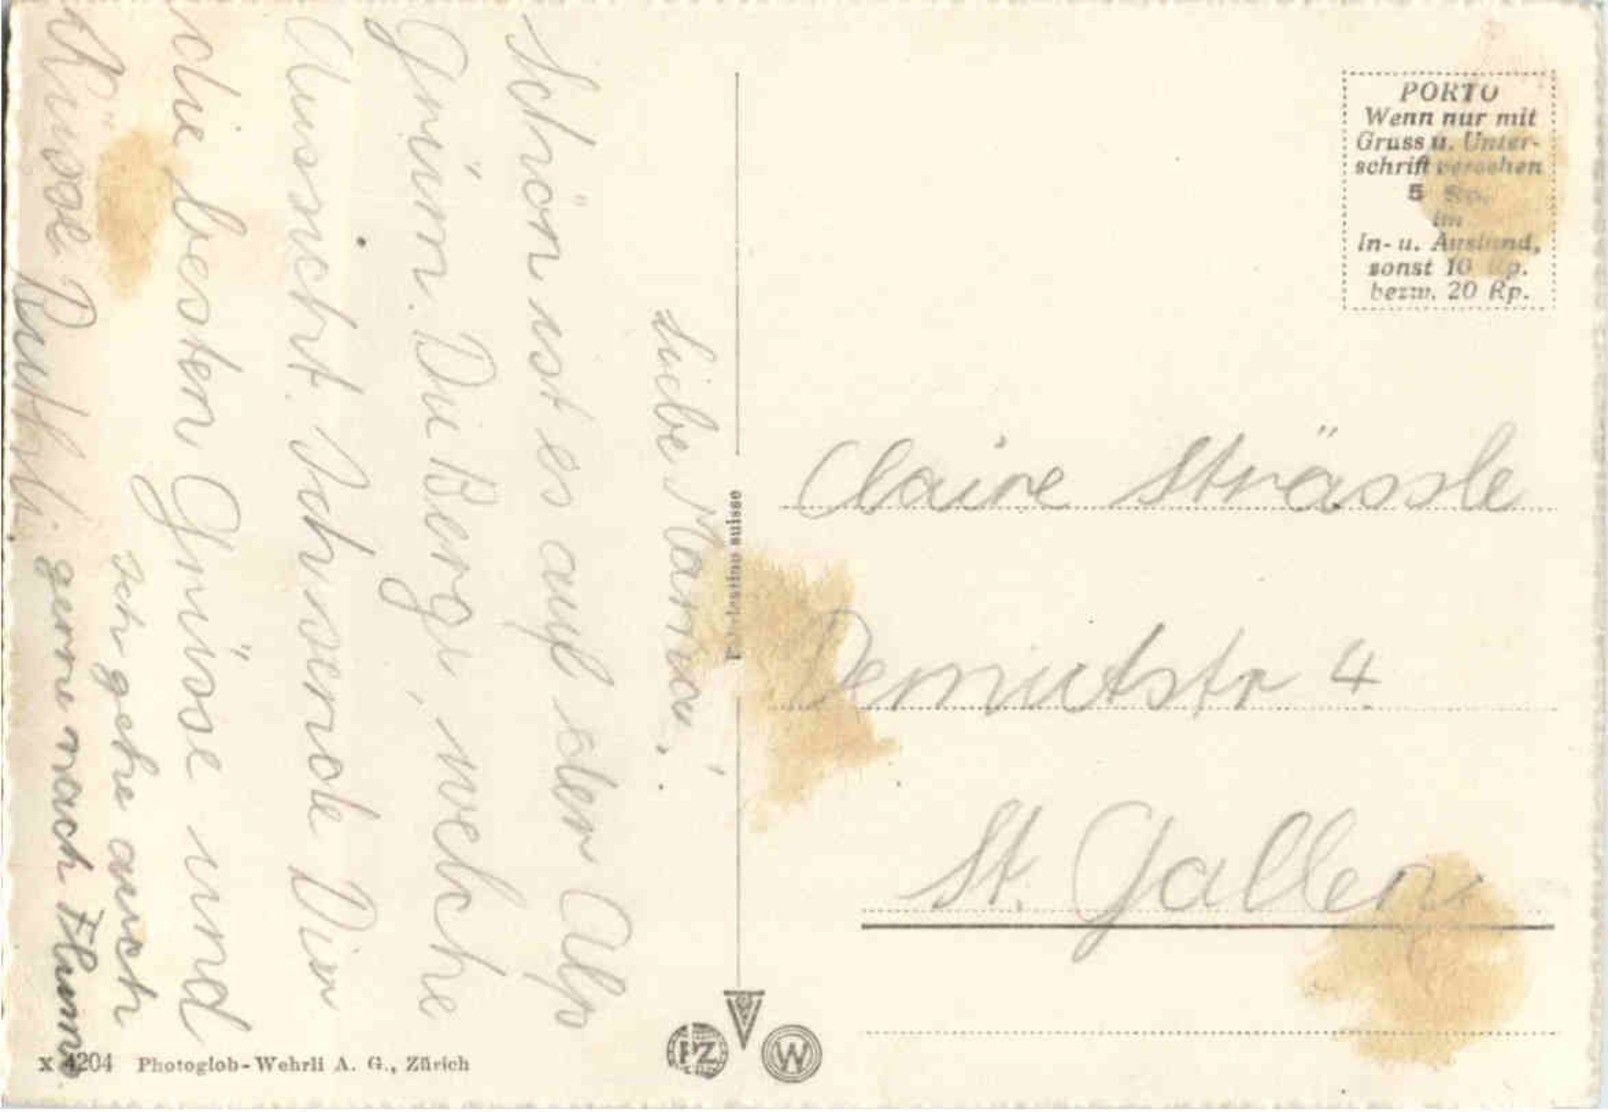 Liebe Mama,
Schön ist es auf der Alp
Grüm. Die Berge, welche
Aussicht. Ich sende Dir
die besten Grüsse und
Küsse Ruthli.
Ich gehe auch
gerne nach Flums
PORTO
Wenn nur mit
Gruss u. Unter-
schrift versehen
5 Rp.
im
In- u. Ausland,
sonst 10 Rp.
bezw. 20 Rp.
Claire Strässle
Demutstr 4
St. Gallen
suisse
PZ
W
X 4204 Photoglob-Wehrli A. G., Zürich